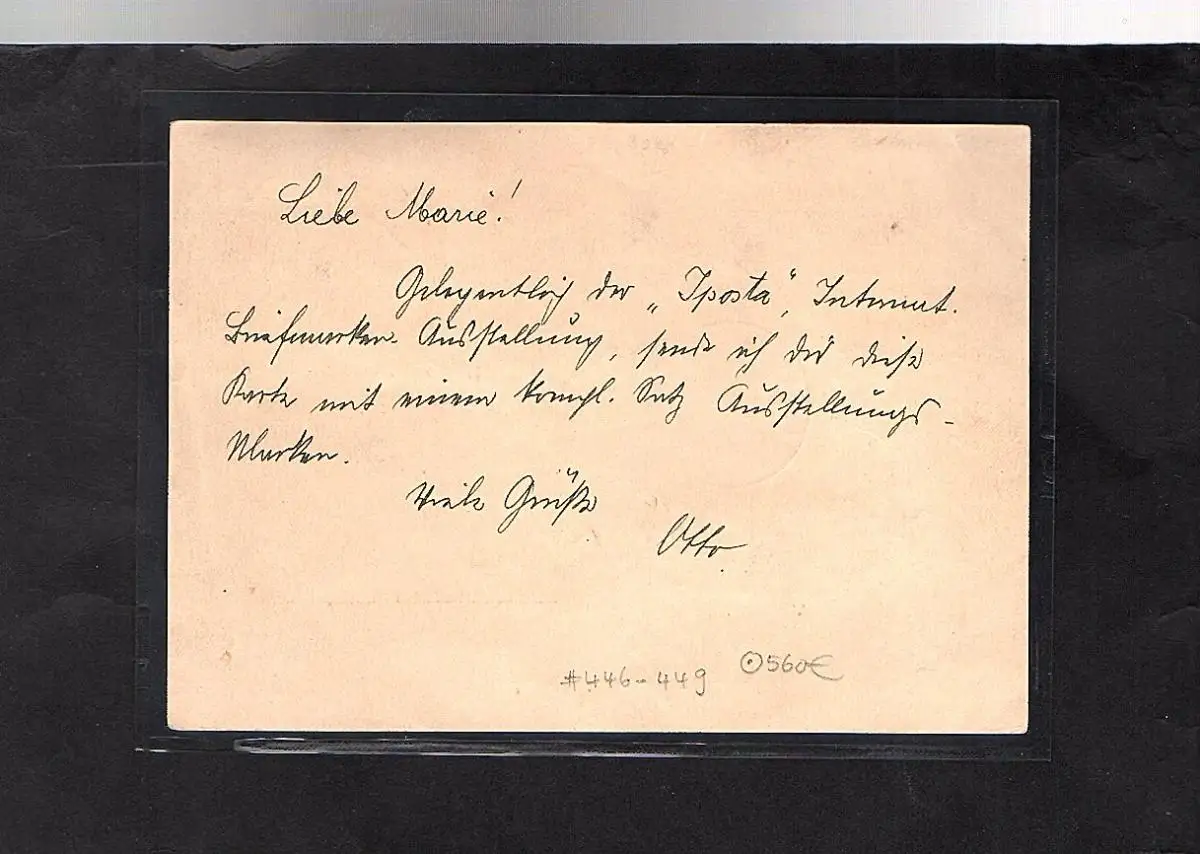 Liebe Marie!
Gelegentlich der „Iposta“, Internat.
Briefmarken-Ausstellung, sende ich dir diese
Karte mit einem kompl. Satz Ausstellungs-
Marken.
Viele Grüße
Otto.
#446-449 ⊙560€